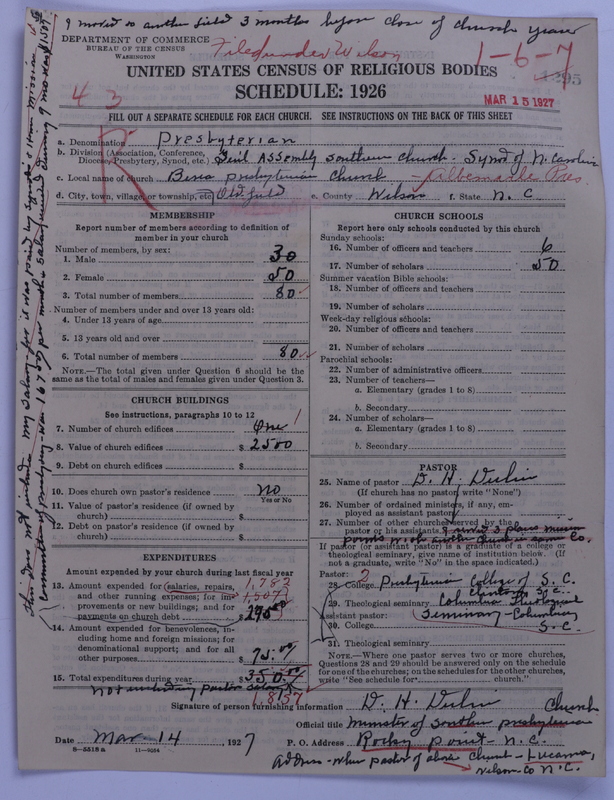 I moved to another field 3 months before close of church year
DEPARTMENT OF COMMERCE
BUREAU OF THE CENSUS
WASHINGTON
Filed under Wilson
1-6-7
1295
UNITED STATES CENSUS OF RELIGIOUS BODIES
SCHEDULE: 1926
MAR 15 1927
43
FILL OUT A SEPARATE SCHEDULE FOR EACH CHURCH. SEE INSTRUCTIONS ON THE BACK OF THIS SHEET
a. Denomination Presbyterian
b. Division (Association, Conference, Diocese, Presbytery, Synod, etc.) Genl Assembly Southern Church - Synod of N. Carolina
c. Local name of church Presbyterian Church - Albemarle Pres.
d. City, town, village, or township, etc. Oldfield e. County Wilson f. State N. C.
MEMBERSHIP
Report number of members according to definition of
member in your church
Number of members, by sex:
1. Male 30
2. Female 50
3. Total number of members 80
Number of members under and over 13 years old:
4. Under 13 years of age
5. 13 years old and over
6. Total number of members 80
NOTE.—The total given under Question 6 should be the
same as the total of males and females given under Question 3.
CHURCH BUILDINGS
See instructions, paragraphs 10 to 12
7. Number of church edifices One 1
8. Value of church edifices $ 2500
9. Debt on church edifices $
10. Does church own pastor's residence No
Yes or No
11. Value of pastor's residence (if owned by
church) $
12. Debt on pastor's residence (if owned by
church) $
EXPENDITURES
Amount expended by your church during last fiscal year
13. Amount expended for salaries, repairs, 1,782
and other running expenses; for im- 1,507
provements or new buildings; and for
payments on church debt $ 275.00
14. Amount expended for benevolences, in-
cluding home and foreign missions; for
denominational support; and for all
other purposes $ 75.00
15. Total expenditures during year $ 350.00
not including pastor salary
1857
CHURCH SCHOOLS
Report here only schools conducted by this church
Sunday schools:
16. Number of officers and teachers 6
17. Number of scholars 50
Summer vacation Bible schools:
18. Number of officers and teachers
19. Number of scholars
Week-day religious schools:
20. Number of officers and teachers
21. Number of scholars
Parochial schools:
22. Number of administrative officers
23. Number of teachers—
a. Elementary (grades 1 to 8)
b. Secondary
24. Number of scholars—
a. Elementary (grades 1 to 8)
b. Secondary
PASTOR
25. Name of pastor D. H.
(If church has no pastor, write "None")
26. Number of ordained ministers, if any, em-
ployed as assistant pastor
27. Number of other churches served by the
pastor or his assistants I served 3 places mission
points with another church in same Co.
If pastor (or assistant pastor) is a graduate of a college or
theological seminary, give name of institution below. (If
not a graduate, write "No" in the space indicated.)
Pastor: 2
28. College Presbyterian College of S. C.
Clinton, S. C.
29. Theological seminary Columbia Theological
Assistant pastor: Seminary - Columbia
30. College S. C.
31. Theological seminary
NOTE.—Where one pastor serves two or more churches,
Questions 28 and 29 should be answered only on the schedule
for one of the churches; on the schedules for the other churches,
write "See schedule for church."
Signature of person furnishing information D. H.
Official title Minister of Southern Presbyterian Church
Date Mar 14, 1927
P. O. Address Rocky Point N. C.
8-5518 a 11-9064
Address - when pastor of above church - Lucama,
Wilson Co N. C.